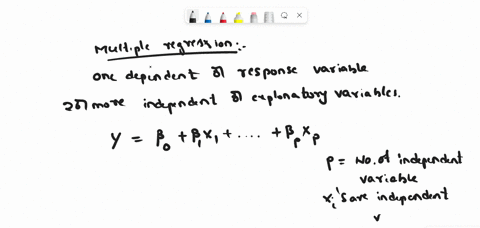 Multiple regression:-
one dependent or response variable
2 or more independent or explonatory variables.
Y = β₀ + β₁x₁ + .... + βₚxₚ
p = No. of independent
variable
xᵢ's are independent
v